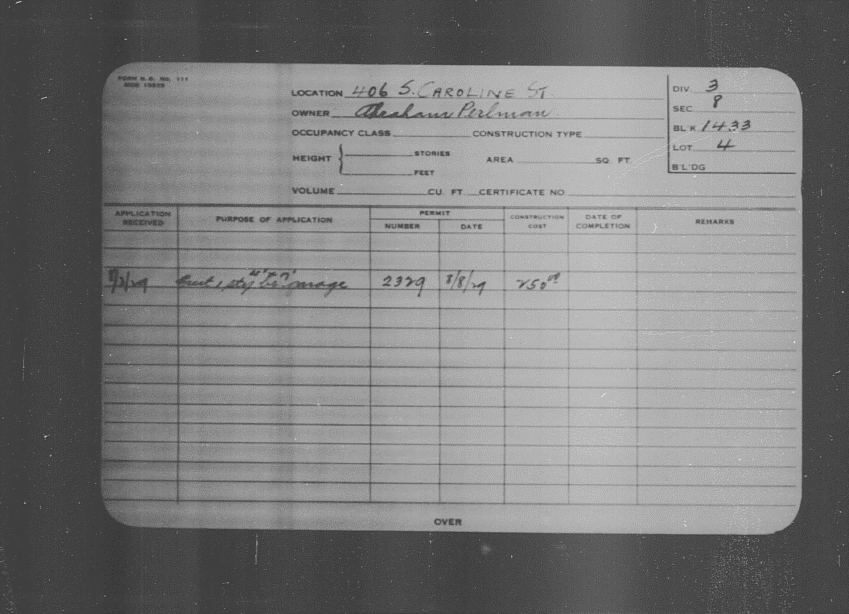 FORM B. B. NO. 111
MOD 13629
LOCATION 406 S. CAROLINE ST
OWNER Abraham Perlman
OCCUPANCY CLASS CONSTRUCTION TYPE
HEIGHT STORIES FEET
AREA SQ. FT.
VOLUME CU. FT. CERTIFICATE NO.
DIV. 3
SEC. 8
BL'K 1433
LOT 4
B'L'DG
APPLICATION RECEIVED PURPOSE OF APPLICATION PERMIT NUMBER DATE CONSTRUCTION COST DATE OF COMPLETION REMARKS
1 sty garage 2329 8/8/29 250 00
OVER